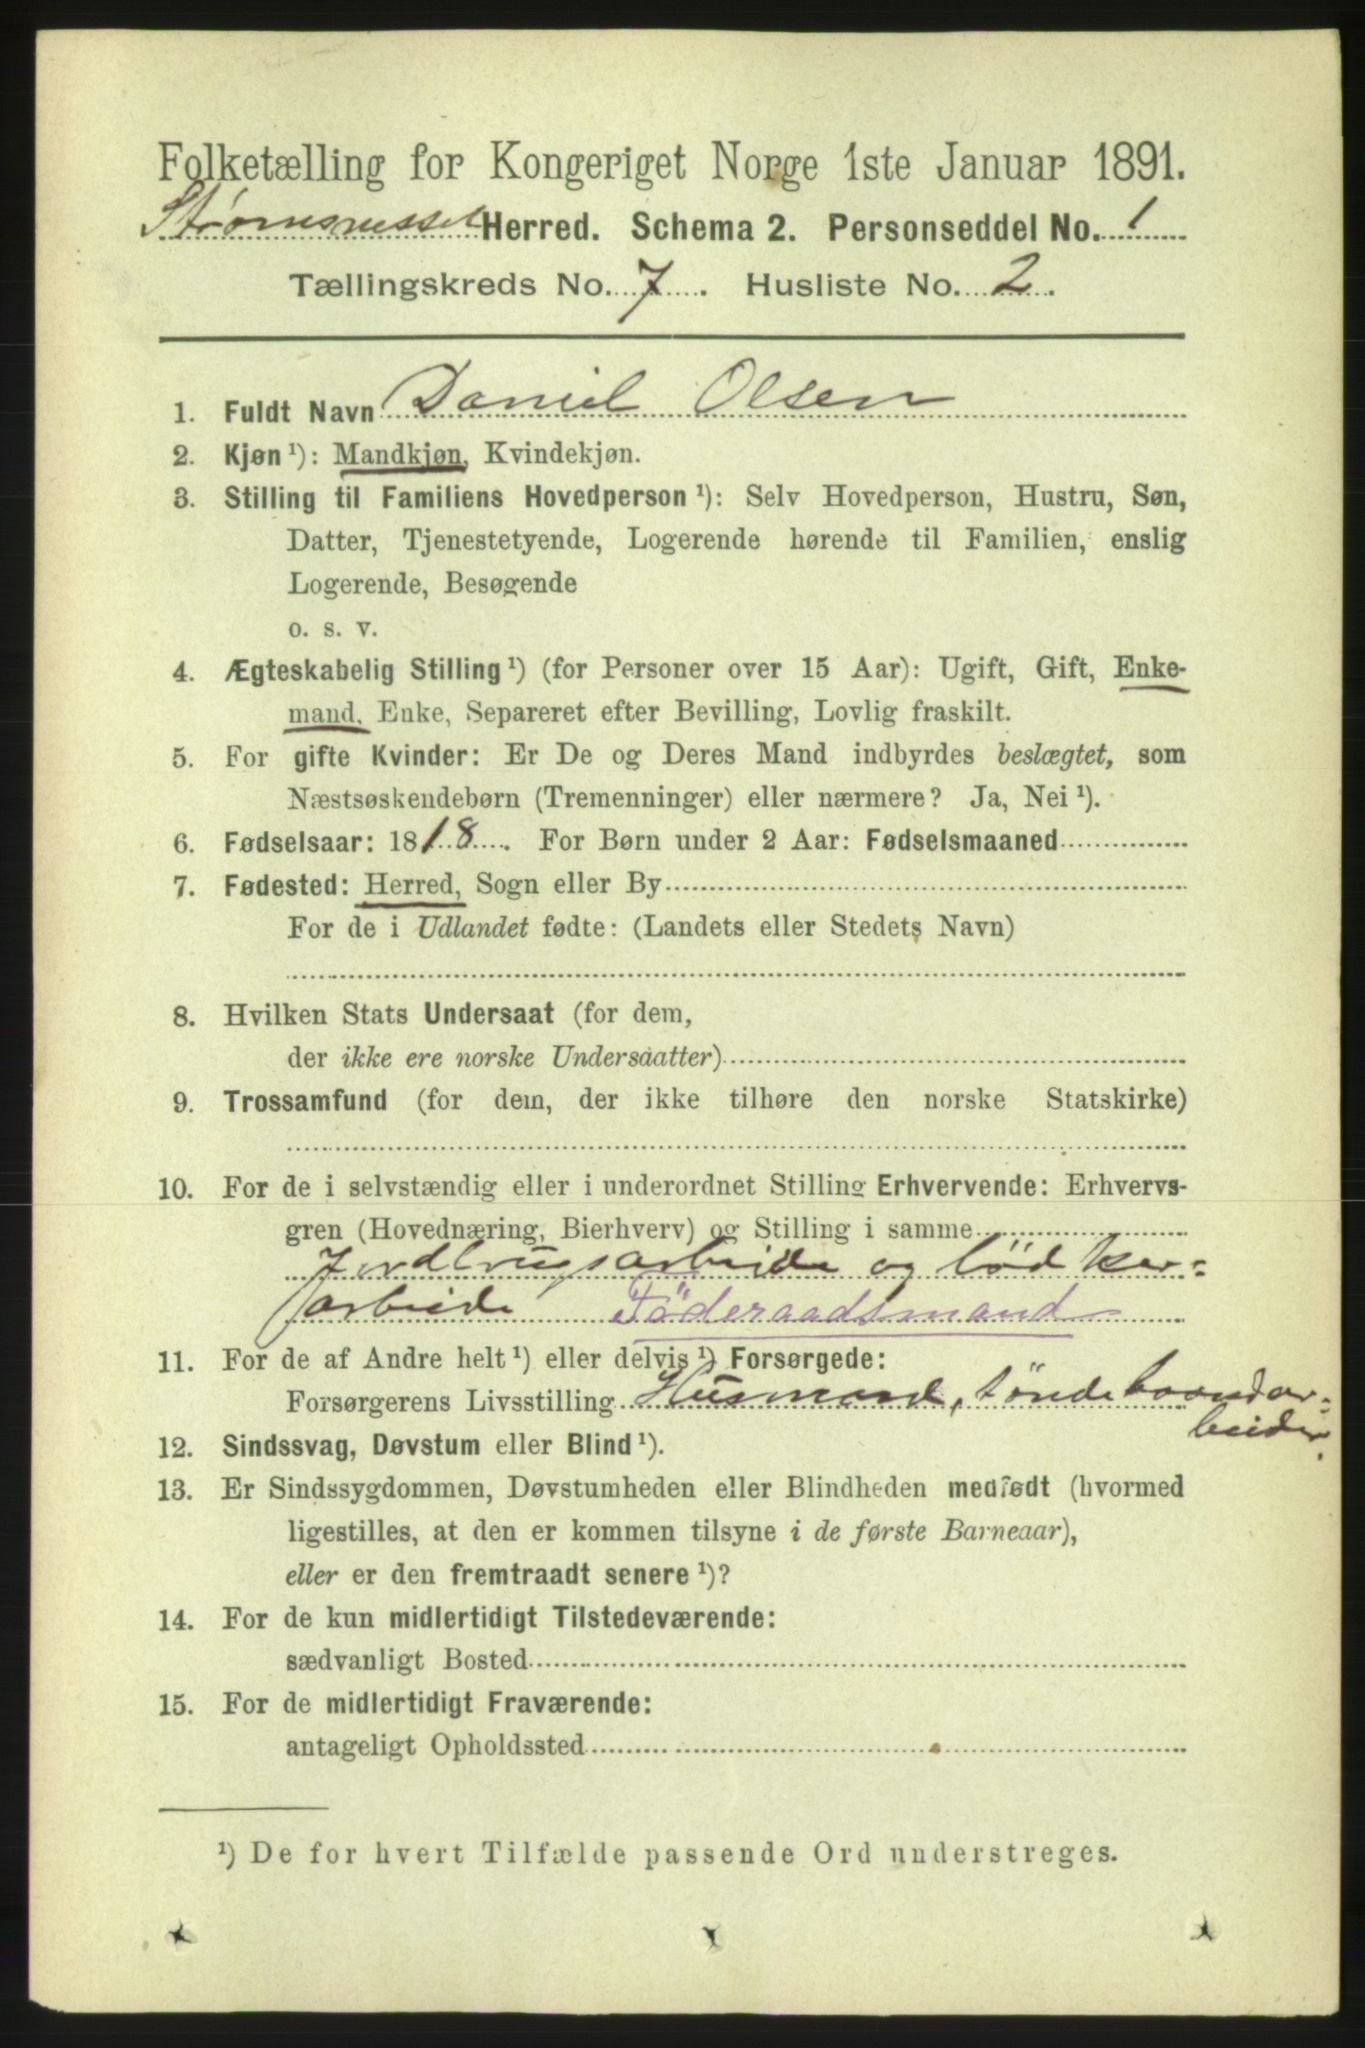 Folketælling for Kongeriget Norge 1ste Januar 1891.
Strømmsnesset Herred. Schema 2. Personseddel No. 1
Tællingskreds No. 7. Husliste No. 2.
1. Fuldt Navn Daniel Olsen
2. Kjøn ¹): Mandkjøn, Kvindekjøn.
3. Stilling til Familiens Hovedperson ¹): Selv Hovedperson, Hustru, Søn,
Datter, Tjenestetyende, Logerende hørende til Familien, enslig
Logerende, Besøgende
o. s. v.
4. Ægteskabelig Stilling ¹) (for Personer over 15 Aar): Ugift, Gift, Enke-
mand, Enke, Separeret efter Bevilling, Lovlig fraskilt.
5. For gifte Kvinder: Er De og Deres Mand indbyrdes beslægtet, som
Næstsøskendebørn (Tremenninger) eller nærmere? Ja, Nei ¹).
6. Fødselsaar: 1818. For Børn under 2 Aar: Fødselsmaaned
7. Fødested: Herred, Sogn eller By
For de i Udlandet fødte: (Landets eller Stedets Navn)
8. Hvilken Stats Undersaat (for dem,
der ikke ere norske Undersaatter)
9. Trossamfund (for dem, der ikke tilhøre den norske Statskirke)
10. For de i selvstændig eller i underordnet Stilling Erhvervende: Erhvervs-
gren (Hovednæring, Bierhverv) og Stilling i samme
Jordbrugsarbeide og bødker=
arbeide Föderaadsmand
11. For de af Andre helt ¹) eller delvis ¹) Forsørgede:
Forsørgerens Livsstilling Husmand, töndebaandar=
beider.
12. Sindssvag, Døvstum eller Blind ¹).
13. Er Sindssygdommen, Døvstumheden eller Blindheden medfødt (hvormed
ligestilles, at den er kommen tilsyne i de første Barneaar),
eller er den fremtraadt senere ¹)?
14. For de kun midlertidigt Tilstedeværende:
sædvanligt Bosted
15. For de midlertidigt Fraværende:
antageligt Opholdssted
¹) De for hvert Tilfælde passende Ord understreges.